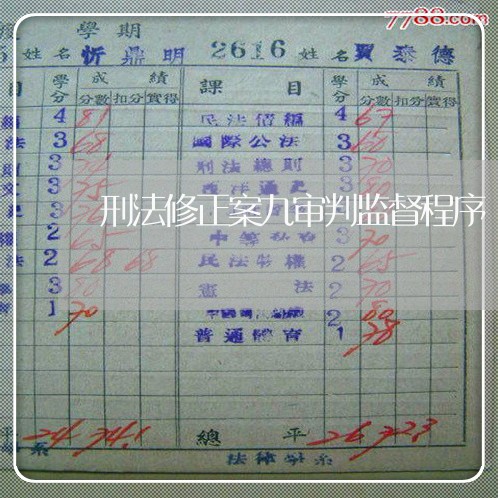 7788.com
學期
姓名 忻鼎明 2616 姓名 賈泰德
目 學分 成績 課目 學分 成績
分數 扣分 實得 分數 扣分 實得
4 81 民法債編 4 67
法 3 68 國際公法 3 60
3 刑法總則 3 70
3 75 3 80
刑法修正案九审判监督程序
2 65 3 70
法 2 68 68 民法物權 2 65
3 80 憲法 2 70
1 70 2 80
普通體育 1 78
平 24 74.1 總平 26 72.3
系 法律學系